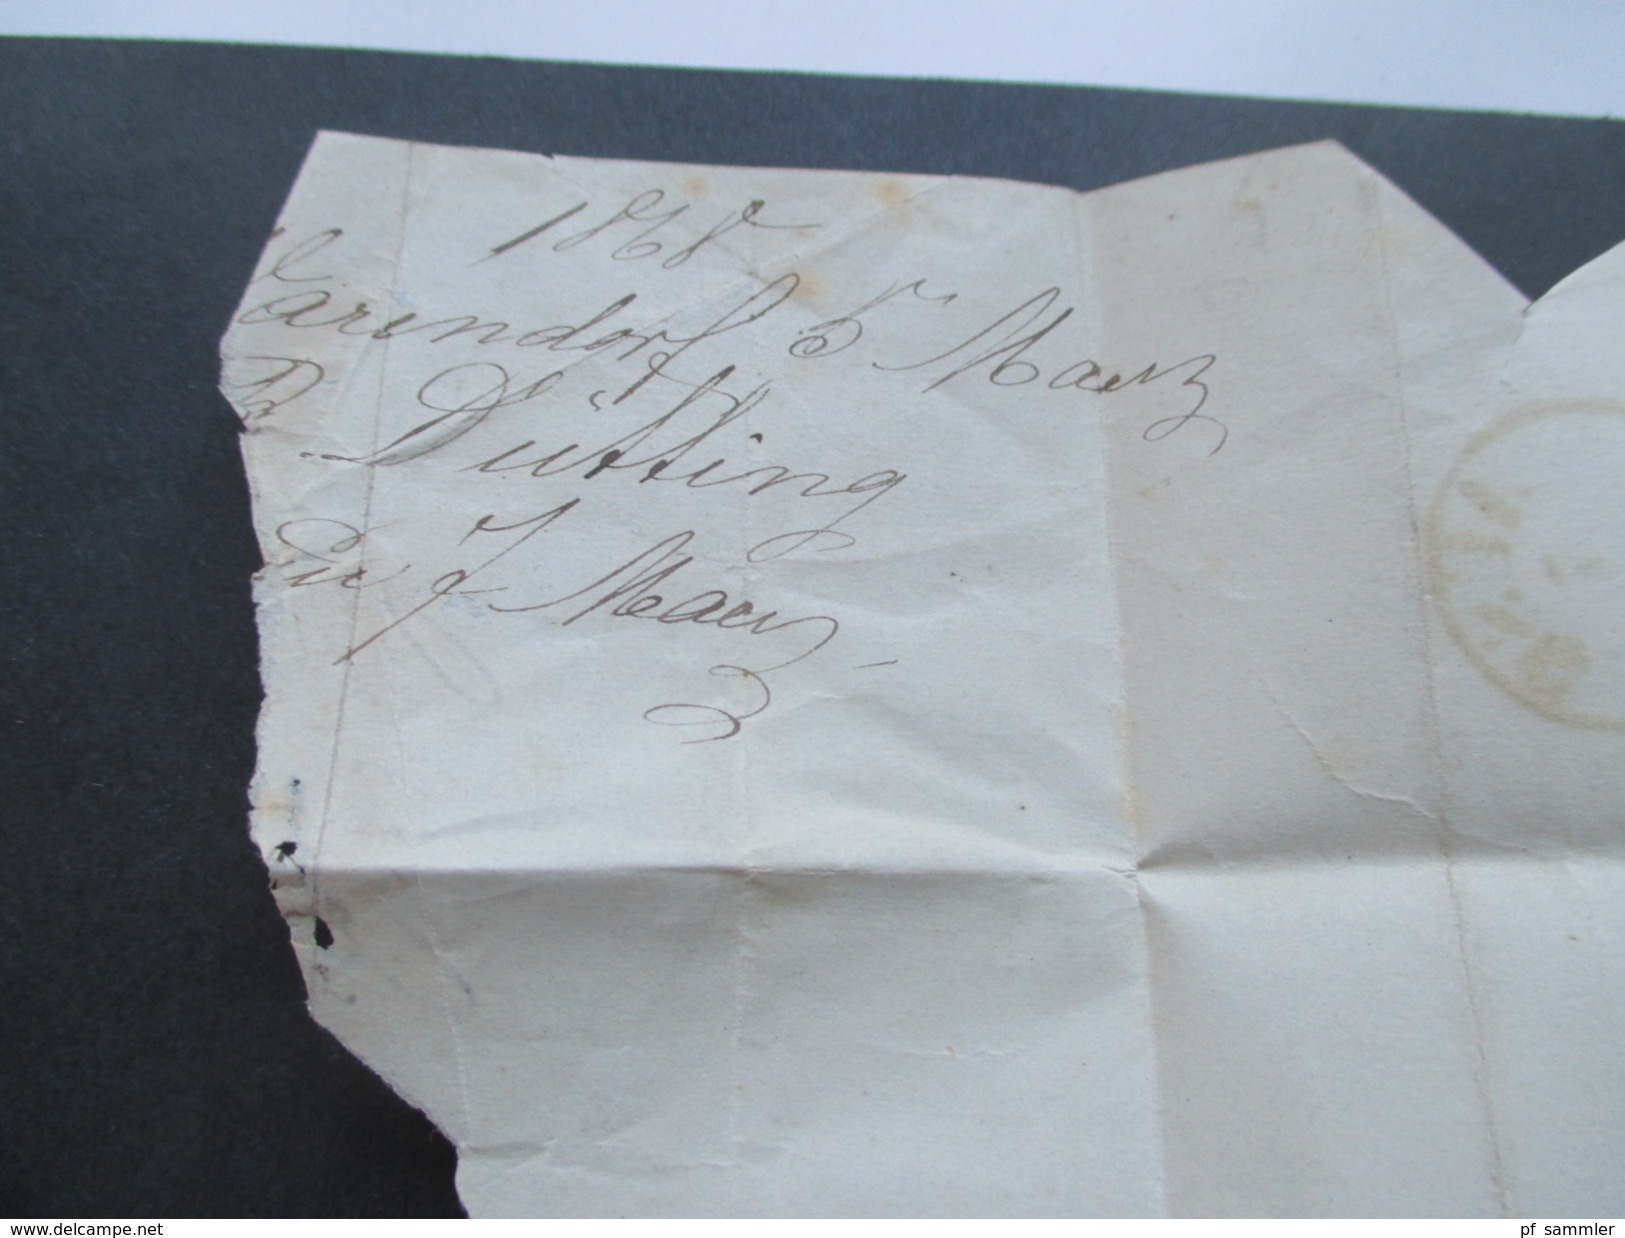 1868
Warendorf 5 Maerz
Dütting
7 Maerz
www.delcampe.net
pf_sammler